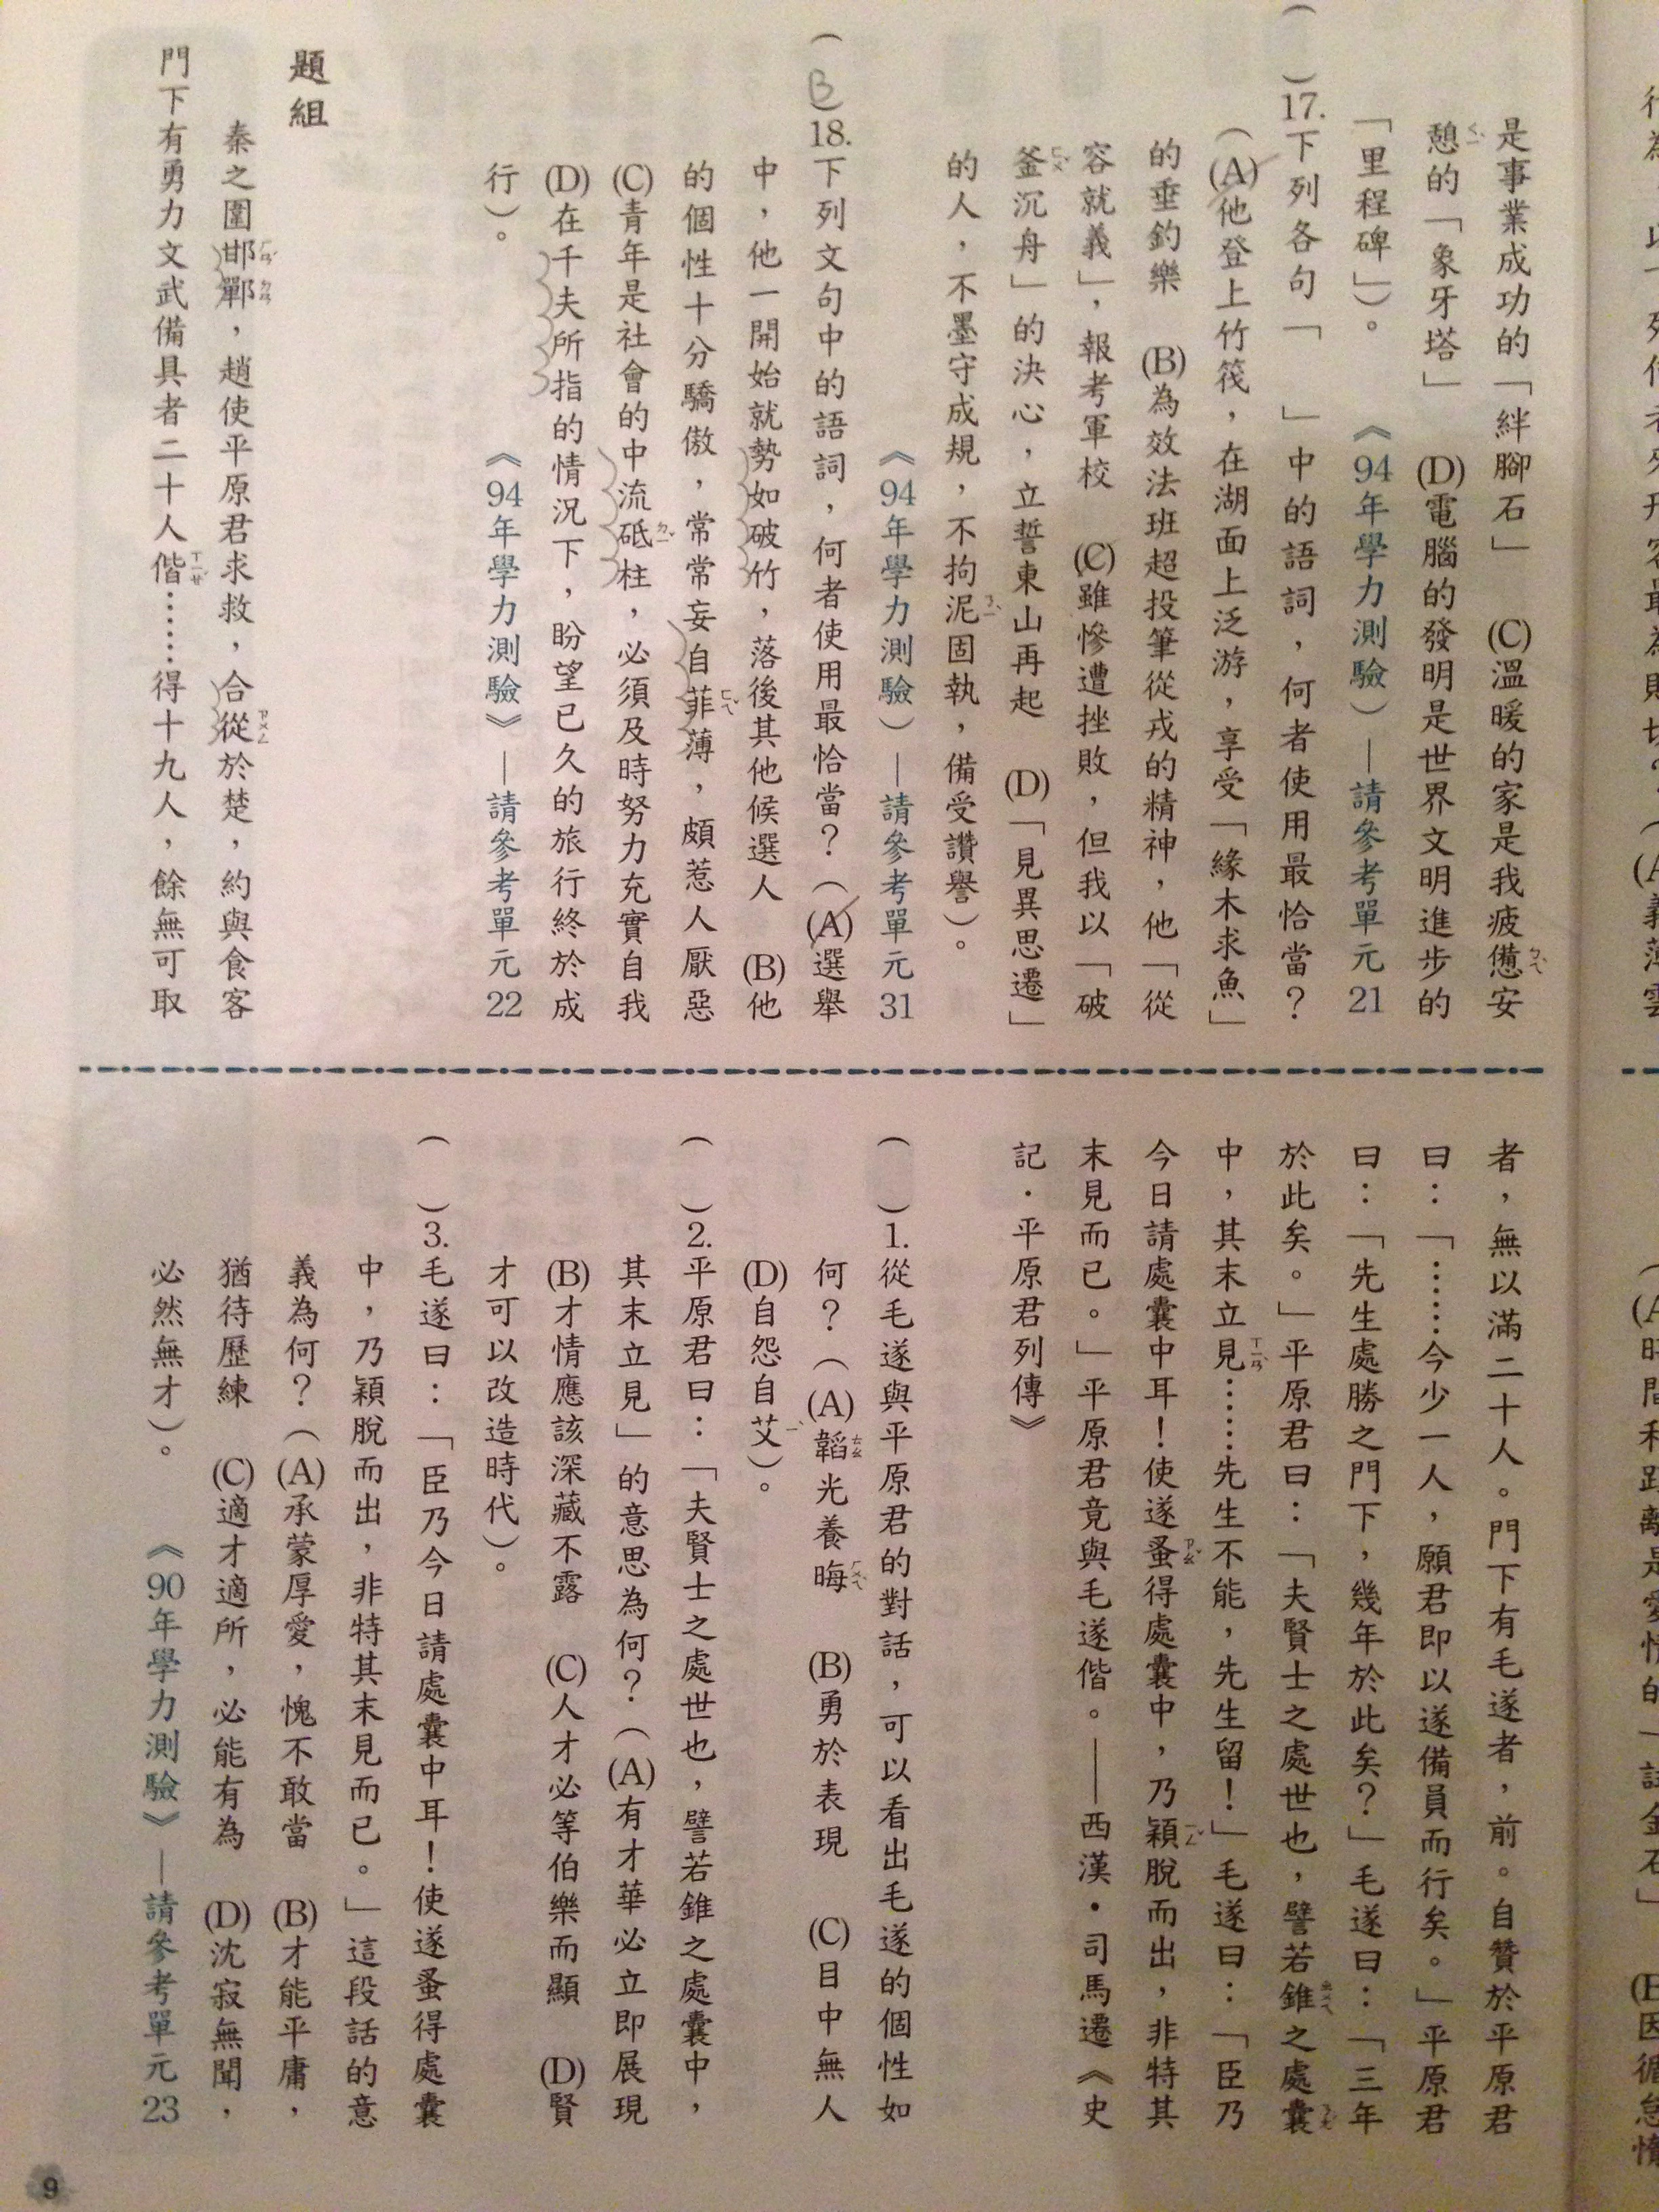 是事業成功的「絆腳石」　(C)溫暖的家是我疲憊安
憩的「象牙塔」　(D)電腦的發明是世界文明進步的
「里程碑」）。　《94年學力測驗》—請參考單元21
（　）17.下列各句「　」中的語詞，何者使用最恰當？
（(A)他登上竹筏，在湖面上泛游，享受「緣木求魚」
的垂釣樂　(B)為效法班超投筆從戎的精神，他「從
容就義」，報考軍校　(C)雖慘遭挫敗，但我以「破
釜沉舟」的決心，立誓東山再起　(D)「見異思遷」
的人，不墨守成規，不拘泥固執，備受讚譽）。
《94年學力測驗》—請參考單元31
（B）18.下列文句中的語詞，何者使用最恰當？（(A)選舉
中，他一開始就勢如破竹，落後其他候選人　(B)他
的個性十分驕傲，常常妄自菲薄，頗惹人厭惡
(C)青年是社會的中流砥柱，必須及時努力充實自我
(D)在千夫所指的情況下，盼望已久的旅行終於成
行）。　《94年學力測驗》—請參考單元22
題組
秦之圍邯鄲，趙使平原君求救，合從於楚，約與食客
門下有勇力文武備具者二十人偕……得十九人，餘無可取
者，無以滿二十人。門下有毛遂者，前。自贊於平原君
曰：「……今少一人，願君即以遂備員而行矣。」平原君
曰：「先生處勝之門下，幾年於此矣？」毛遂曰：「三年
於此矣。」平原君曰：「夫賢士之處世也，譬若錐之處囊
中，其末立見……先生不能，先生留！」毛遂曰：「臣乃
今日請處囊中耳！使遂蚤得處囊中，乃穎脫而出，非特其
末見而已。」平原君竟與毛遂偕。——西漢・司馬遷《史
記・平原君列傳》
（　）1.從毛遂與平原君的對話，可以看出毛遂的個性如
何？（(A)韜光養晦　(B)勇於表現　(C)目中無人
(D)自怨自艾）。
（　）2.平原君曰：「夫賢士之處世也，譬若錐之處囊中，
其末立見」的意思為何？（(A)有才華必立即展現
(B)才情應該深藏不露　(C)人才必等伯樂而顯　(D)賢
才可以改造時代）。
（　）3.毛遂曰：「臣乃今日請處囊中耳！使遂蚤得處囊
中，乃穎脫而出，非特其末見而已。」這段話的意
義為何？（(A)承蒙厚愛，愧不敢當　(B)才能平庸，
猶待歷練　(C)適才適所，必能有為　(D)沈寂無聞，
必然無才）。　《90年學力測驗》—請參考單元23
9